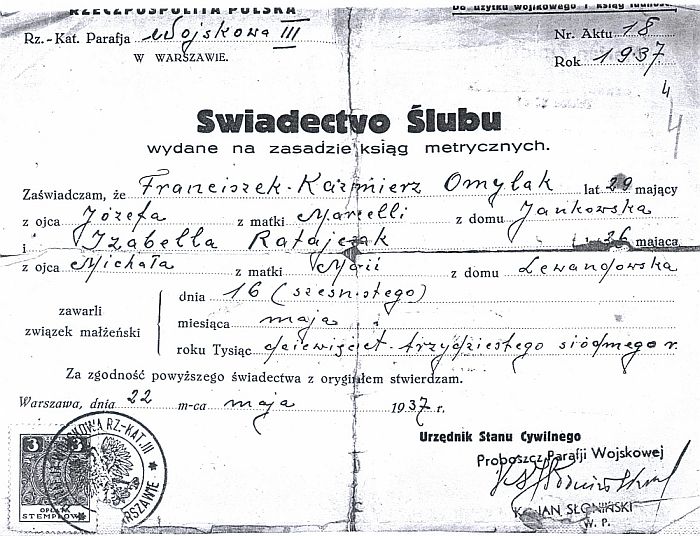 RZECZPOSPOLITA POLSKA
Do użytku wojkowego i ksiąg ludnośc.
Rz.-Kat. Parafja Wojskowa III
W WARSZAWIE.
Nr. Aktu 18
Rok 1937
4
4
Swiadectvo Ślubu
wydane na zasadzie ksiąg metrycznych.
Zaświadczam, że Franciszek-Kazmierz Omylak lat 29 mający
z ojca Józefa z matki Marcelli z domu Jankowska
i Izabella Ratajczak 26 mająca
z ojca Michała z matki Marii z domu Lewandowska
zawarli związek małżeński
dnia 16 (szesnastego)
miesiąca maja
roku Tysiąc dziewięćset trzydziestego siódmego r.
Za zgodność powyższego świadectwa z oryginałem stwierdzam.
Warszawa, dnia 22 m-ca maja 1937 r.
Urzędnik Stanu Cywilnego
Proboszcz Parafji Wojskowej
JAN SŁONIŃSKI
W. P.
3 3
OPŁATA
STEMPLOWA
WOJSKOWA RZ-KAT. III
WARSZAWIE